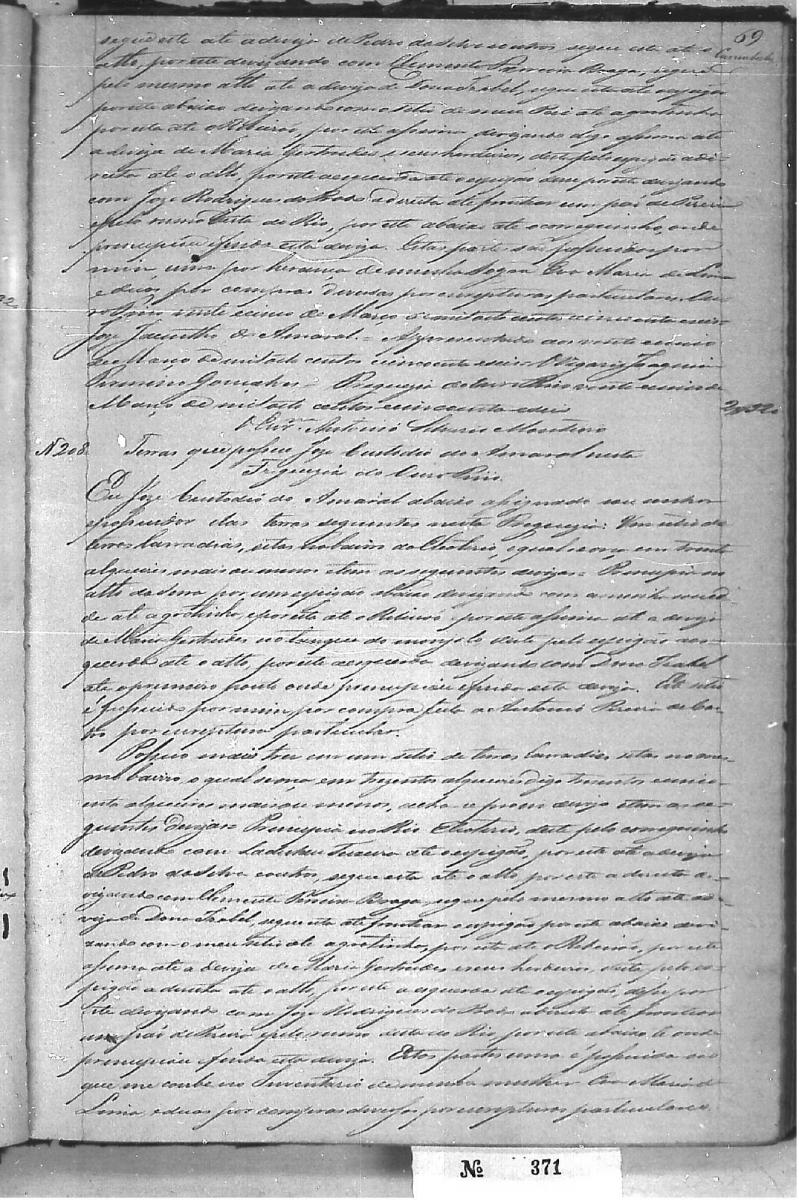 69
segue este até a deviza de Pedro da Silva e outros segue este até o
alto, por este devizando com Clemente Pereira Braga, segue
pelo mesmo alto até a deviza de Dona Izabel, segue esta até o espigão
por este abaixo devizando com o sitio de meu Pai até a grotinha
por esta até o Ribeirão, por este assima devizando digo assima até
a deviza de Maria Gertrudes e seus herdeiros, deste pelo espigão a di-
reita até o alto, por este a esquerda até o espigão, desse por este devizando
com Joze Rodrigues do Prado a direita até frontear um páo de Pereira
e pelo rumo deste do Rio, por este abaixo até o corregozinho, onde
principia e finda esta deviza. Estas partes são possuidas por
mim uma por herança de minha Sogra Anna Maria de Lima
e duas por compras diversas por escripturas particulares. Ou-
ro Fino vinte e cinco de Março de mil oito centos e cincoenta e seis
Joze Jacintho do Amaral. = Apresentado aos vinte e cinco
de Março de mil oito centos cincoenta e seis. O Vigario Joaquim
Firmino Gonçalves = Freguezia de Ouro Fino vinte e cinco de
Março de mil oito centos e cincoenta e seis
O Escr.am Antonio Mario Monteiro
N 208. Terras que possue Joze Custodio do Amaral nesta
Freguezia do Ouro Fino.
Eu Joze Custodio do Amaral abaixo assignado sou senhor
e possuidor das terras seguintes nesta Freguezia: Um sitio de
terras lavradias, sitas no bairro do Eleoterio, o qual se orça em trinta
alqueires mais ou menos e tem as seguintes devizas = Principia no
alto da serra por um espigão abaixo devizando com
até a grotinha, e por esta até o Ribeirão, por este assima até a deviza
de Maria Gertrudes no tanque do monjolo deste pelo espigão a es-
querda até o alto, por este a esquerda devizando com Dona Izabel
até o primeiro ponto onde principia e finda esta deviza. Este sitio
é possuido por mim, por compra feita a Antonio Pereira de Cas-
tro por escriptura particular.
Possuo mais tres em um sitio de terras lavradias sitas no mes-
mo bairro, o qual se orça em trezentos alqueires digo trezentos e cinco-
enta alqueires mais ou menos, e tem as se-
guintes devizas = Principia no Rio Eleoterio, deste pelo corregozinho
devizando com Ladislau Teixeira até o espigão, por este até a deviza
de Pedro da Silva e outros, segue esta até o alto, por este a direita de-
vizando com Clemente Pereira Braga, segue pelo mesmo alto até a de-
viza de Dona Izabel, segue esta até frontear o espigão por este abaixo devi-
zando com o meu sitio até a grotinha, por esta até o Ribeirão, por este
assima até a deviza de Maria Gertrudes e seus herdeiros, deste pelo es-
pigão a direita até o alto, por este a esquerda até o espigão, desse por
este devizando com Joze Rodrigues do Prado a direita até frontear
um páo de Pereira e pelo rumo deste do Rio, por este abaixo té onde
principia e finda esta deviza. Estas partes uma é possuida do
que me coube no Inventario de minha mulher Anna Maria de
Lima, e duas por compras diversas por escripturas particulares.
Nº 371